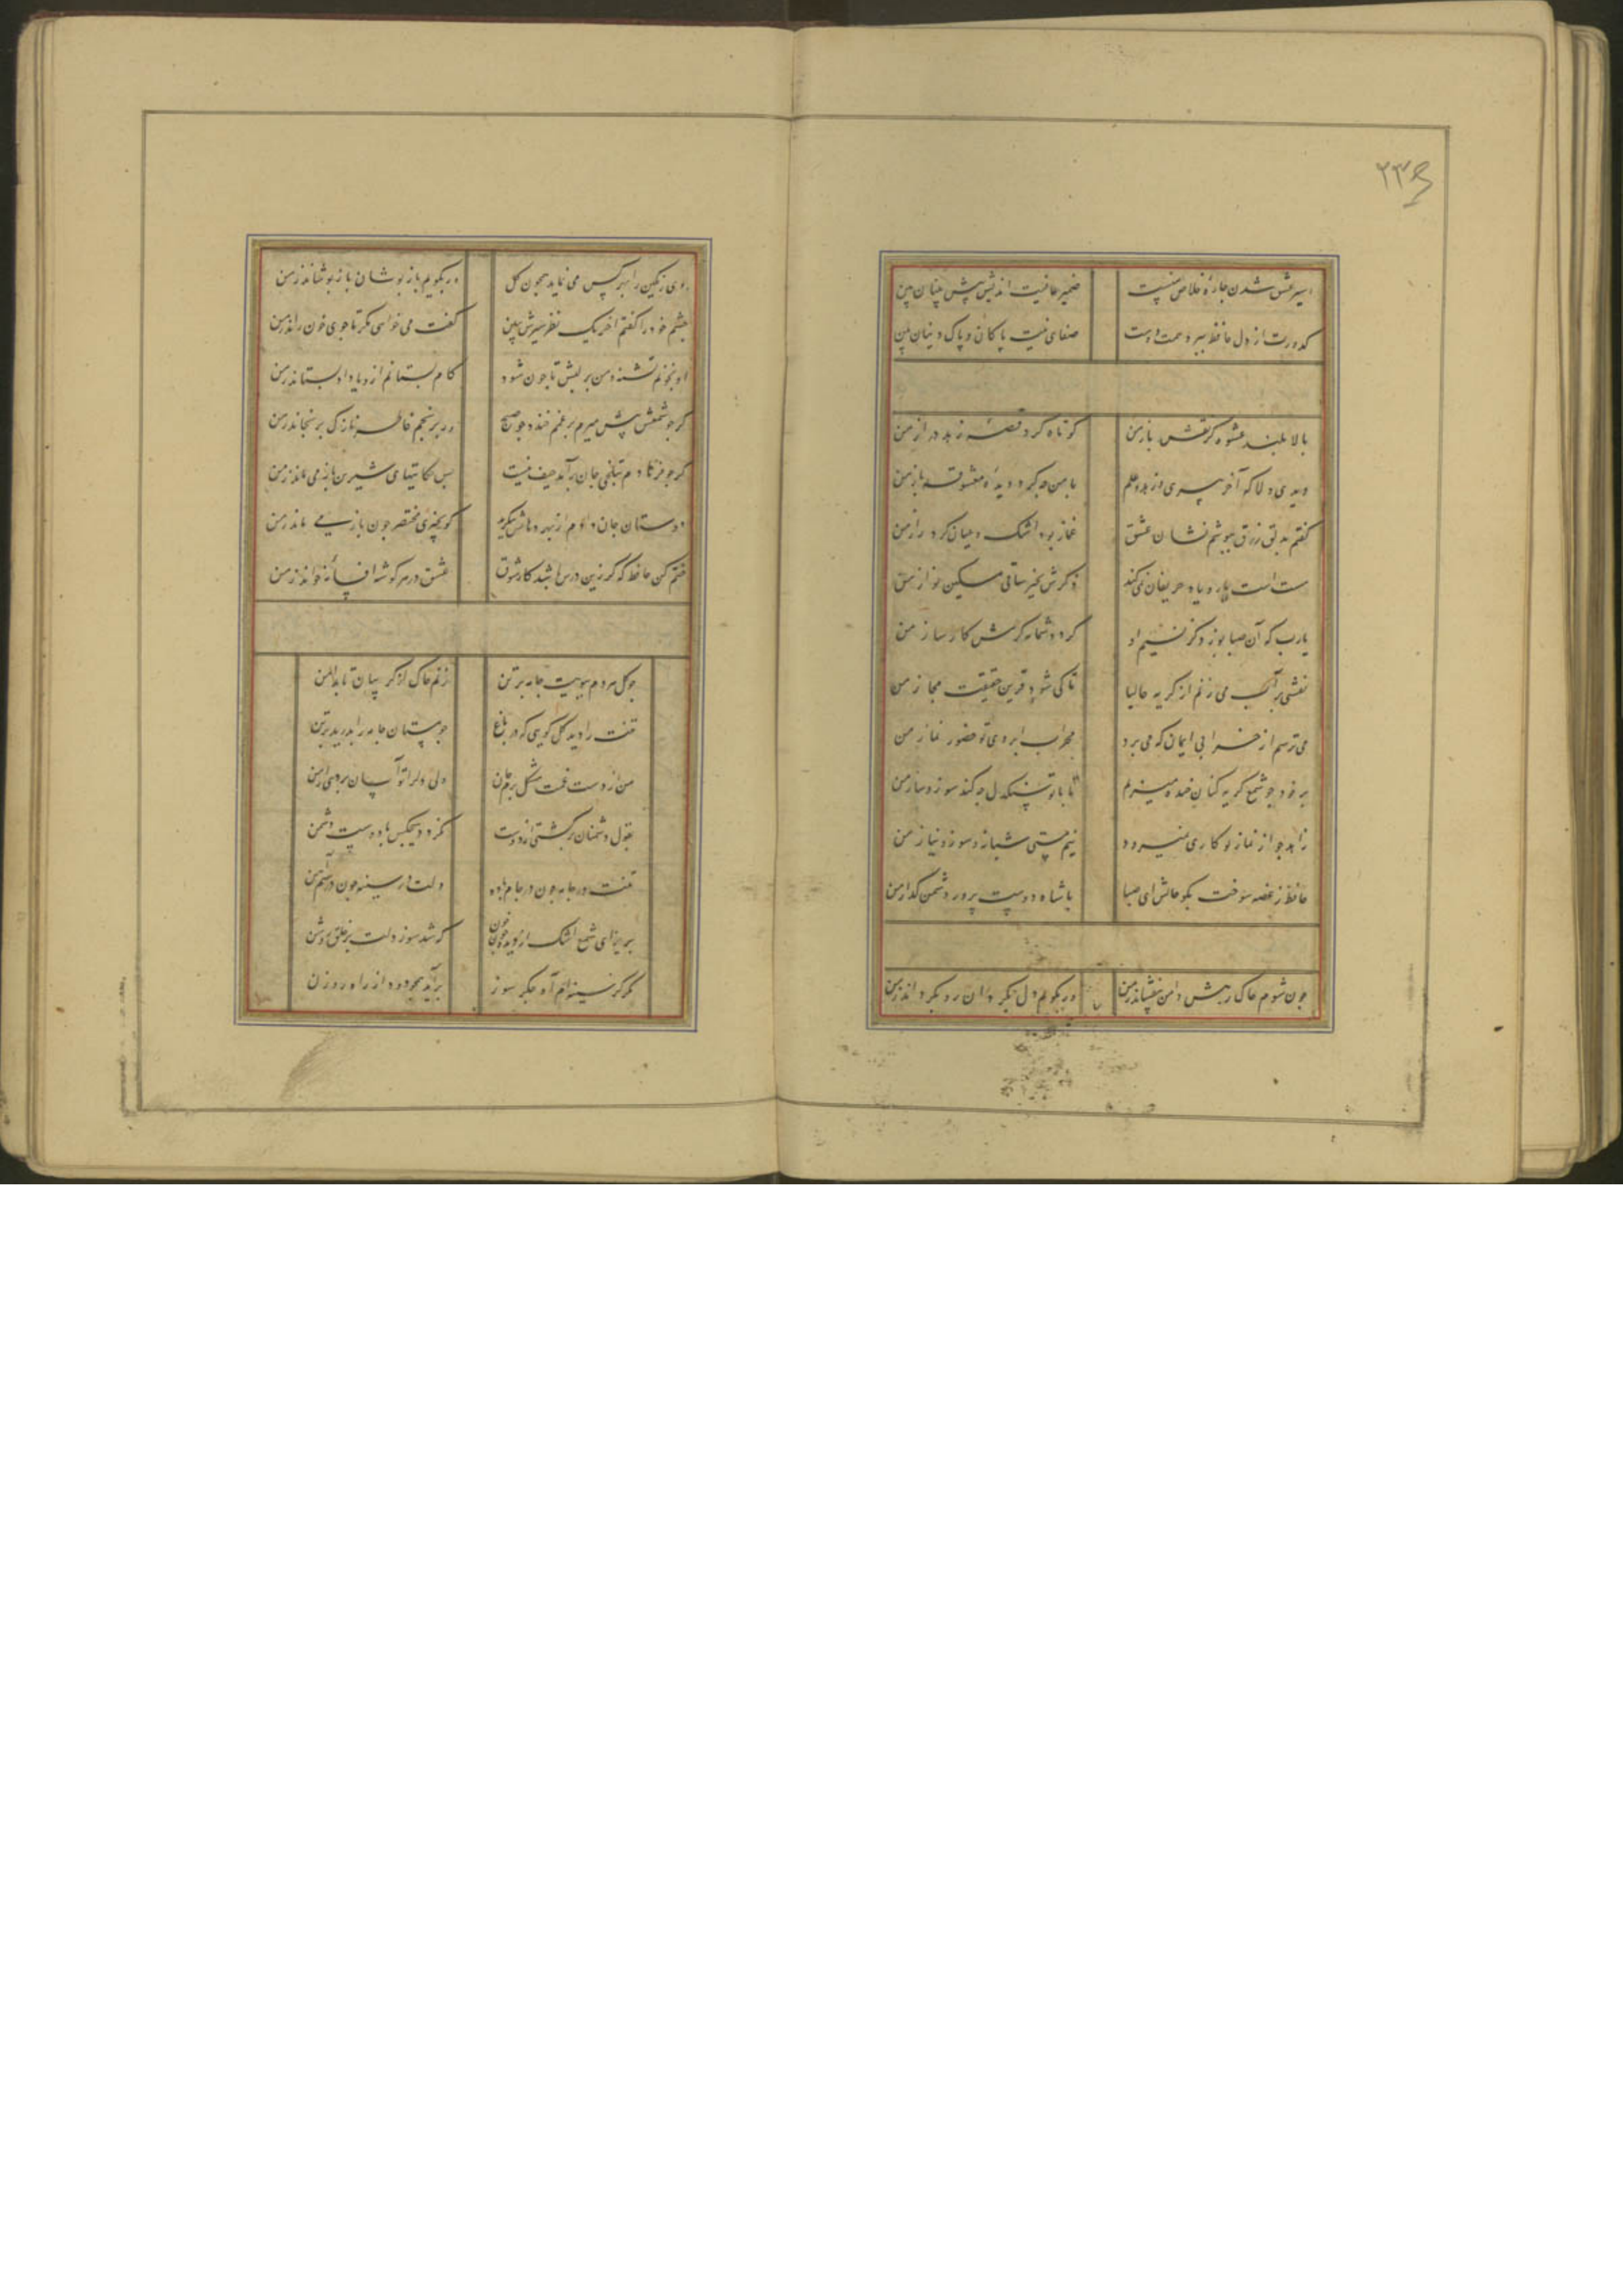 ۲۳۶
اسیر عشق شدن چاره خلاص منست ضمیر عاقبت اندیش پیش بینان بین
کدورت از دل حافظ ببرد صحبت دوست صفای نیت پاکان و پاک دینان بین
بالا بلند عشوه گر نقش باز من کوتاه کرد قصه زهد دراز من
دیدی دلا که آخر پیری و زهد و علم با من چه کرد دیده معشوقه باز من
گفتم بدلق زرق بپوشم نشان عشق غماز بود اشک و عیان کرد راز من
مست است یار و یاد حریفان نمی کند ذکرش بخیر ساقی مسکین نواز من
یارب که آن صبا بوزد کز نسیم او گردد شمامه کرمش کارساز من
نقشی بر آب می زنم از گریه حالیا تا کی شود قرین حقیقت مجاز من
می ترسم از خرابی ایمان که می برد محراب ابروی تو حضور نماز من
بر خود چو شمع گریه کنان خنده میزنم تا با تو سنگدل چه کند سوز و ساز من
زاهد چو از نماز تو کاری نمیرود هم مستی شبانه و سوز و نیاز من
حافظ ز غصه سوخت بگو حالش ای صبا با شاه دوست پرور دشمن گداز من
چون شوم خاک رهش دامن بیفشاند ز من ور بگویم دل بگردان رو بگرداند ز من
روی رنگین را بهر کس می نماید همچون گل ور بگویم باز پوشان باز پوشاند ز من
چشم خود را گفتم آخر یک نظر سیرش ببین گفت می خواهی مگر تا جوی خون راند ز من
او بخونم تشنه و من بر لبش تا چون شود کام بستانم ازو یا داد بستاند ز من
گر چو شمعش پیش میرم بر غمم خندد چو صبح ور برنجم خاطر نازک برنجاند ز من
گر چو فرهادم بتلخی جان برآید حیف نیست بس حکایتهای شیرین باز می ماند ز من
دوستان جان داده ام از بهر دهانش بنگرید کو بچیزی مختصر چون باز می ماند ز من
ختم کن حافظ که گر زین درس باشد کار شوق عشق در هر گوشه افسانه خواند ز من
چو گل هر دم ببویت جامه بر تن زنم چاک از گریبان تا بدامن
تنت را دید گل گویی که در باغ چو مستان جامه را بدرید بر تن
من از دست غمت مشکل برم جان ولی دل را تو آسان بردی از من
بقول دشمنان برگشتی از دوست نگردد هیچکس با دوست دشمن
تنت در جامه چون در جام باده دلت در سینه چون در سیم آهن
ببار ای شمع اشک از دیده خون که شد سوز دلت بر خلق روشن
مکن کز سینه ام آه جگر سوز برآید همچو دود از راه روزن